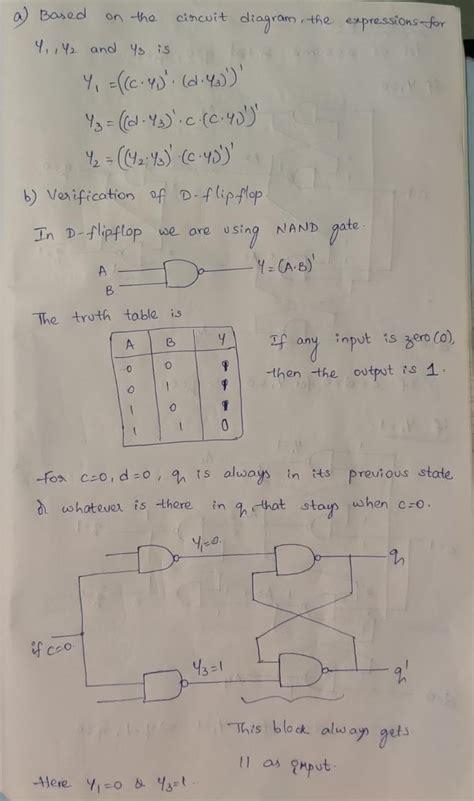 a) Based on the circuit diagram, the expressions for
y1, y2 and y3 is
y1 = ((c·y1)' · (d·y3)')'
y3 = ((d·y3)' · c · (c·y1)')'
y2 = ((y2·y3)' · (c·y1)')'
b) Verification of D-flipflop
In D-flipflop we are using NAND gate.
A
B
y = (A·B)'
The truth table is
A B y
0 0 1
0 1 1
1 0 1
1 1 0
If any input is zero(0),
then the output is 1.
for c=0, d=0, q is always in its previous state
& whatever is there in q, that stays when c=0.
y1=0
q
if c=0
y3=1
q'
This block always gets
11 as input.
Here y1=0 & y3=1.